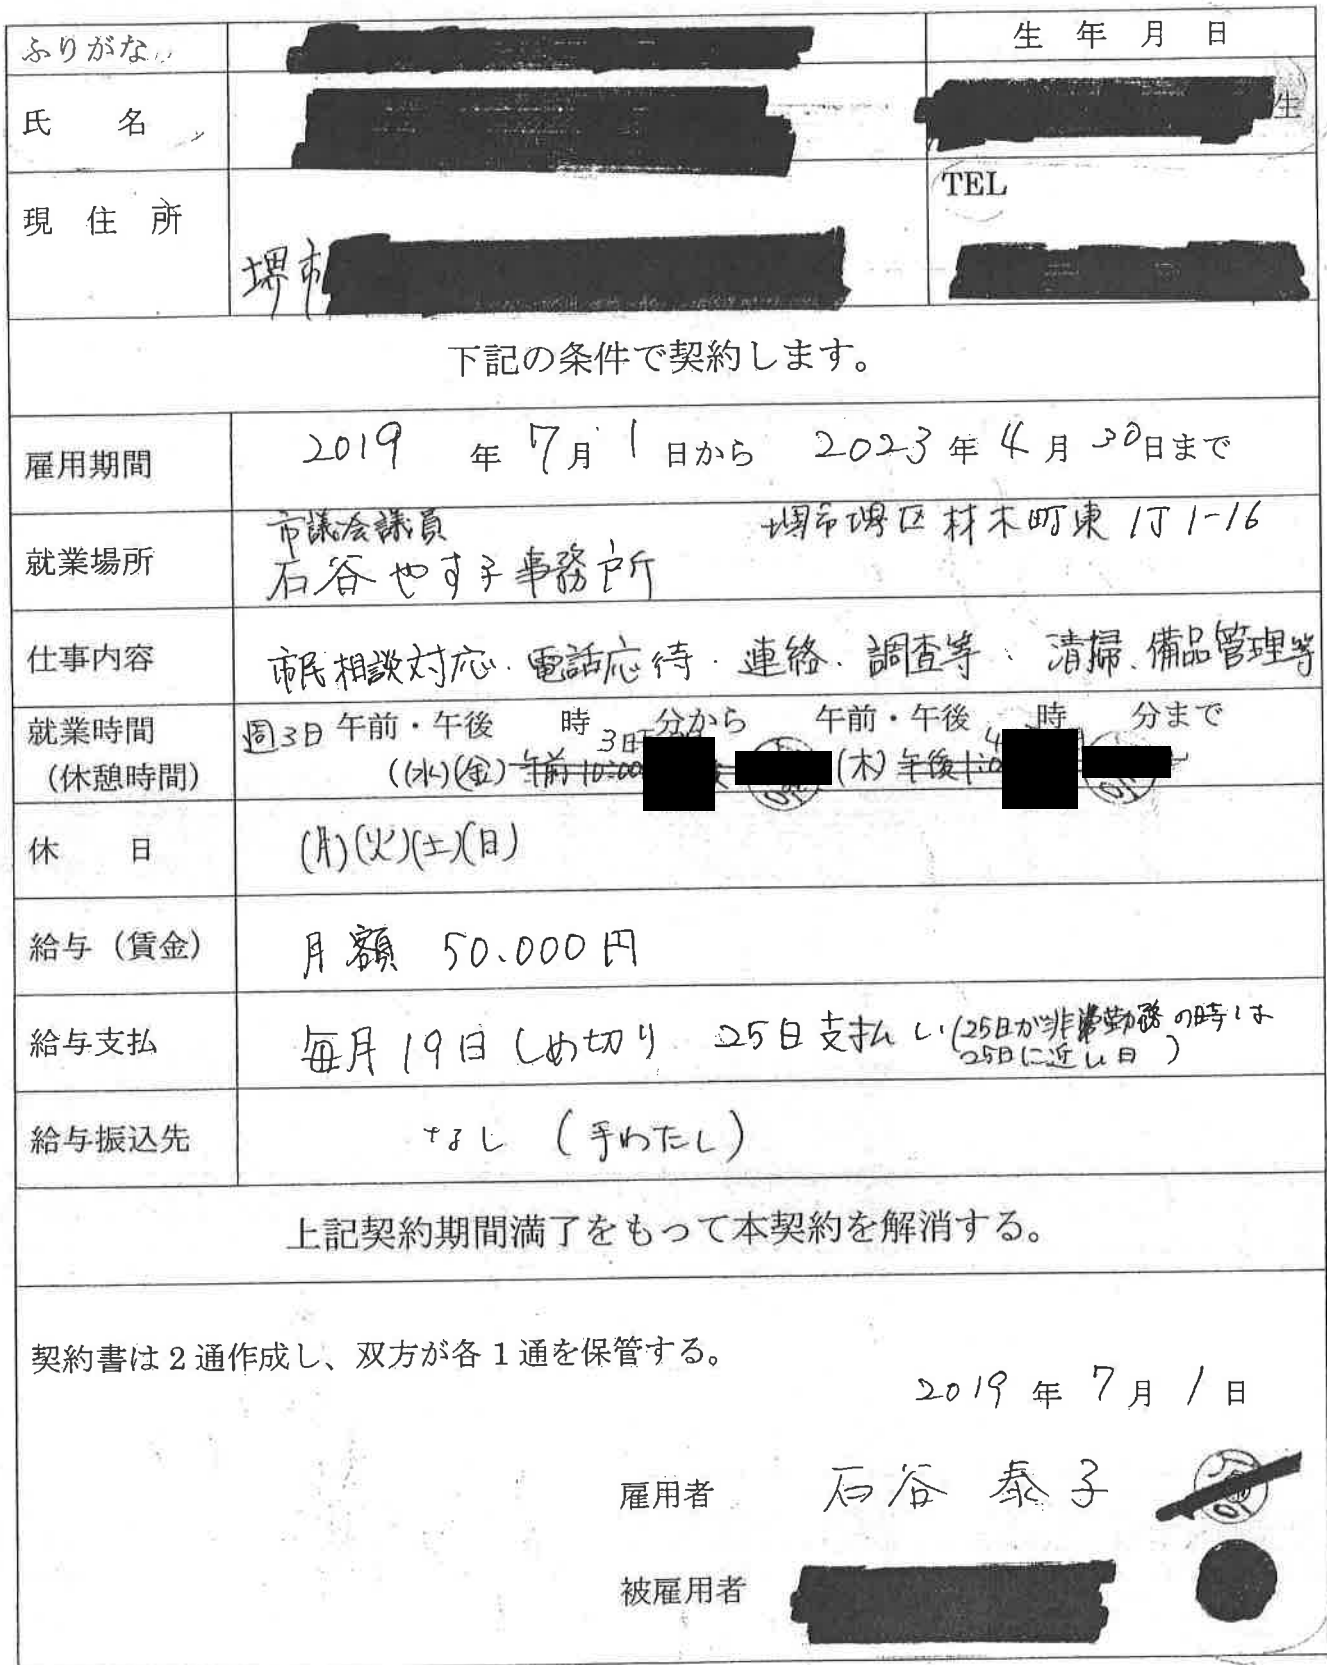 ふりがな
生年月日
氏名
生
現住所
TEL
堺市
下記の条件で契約します。
雇用期間 2019年7月1日から 2023年4月30日まで
就業場所 市議会議員 堺市堺区材木町東1丁1-16
石谷やす子事務所
仕事内容 市民相談対応・電話応待・連絡・調査等、清掃、備品管理等
就業時間 週3日 午前・午後 時 分から 午前・午後 時 分まで
(休憩時間) ((水)(金) 午前10:00 (木) 午後1:0
休日 (月)(火)(土)(日)
給与(賃金) 月額 50.000円
給与支払 毎月19日しめ切り 25日支払い(25日が非常勤務の時は
25日に近い日)
給与振込先 なし (手わたし)
上記契約期間満了をもって本契約を解消する。
契約書は2通作成し、双方が各1通を保管する。
2019年7月1日
雇用者 石谷 泰子
被雇用者